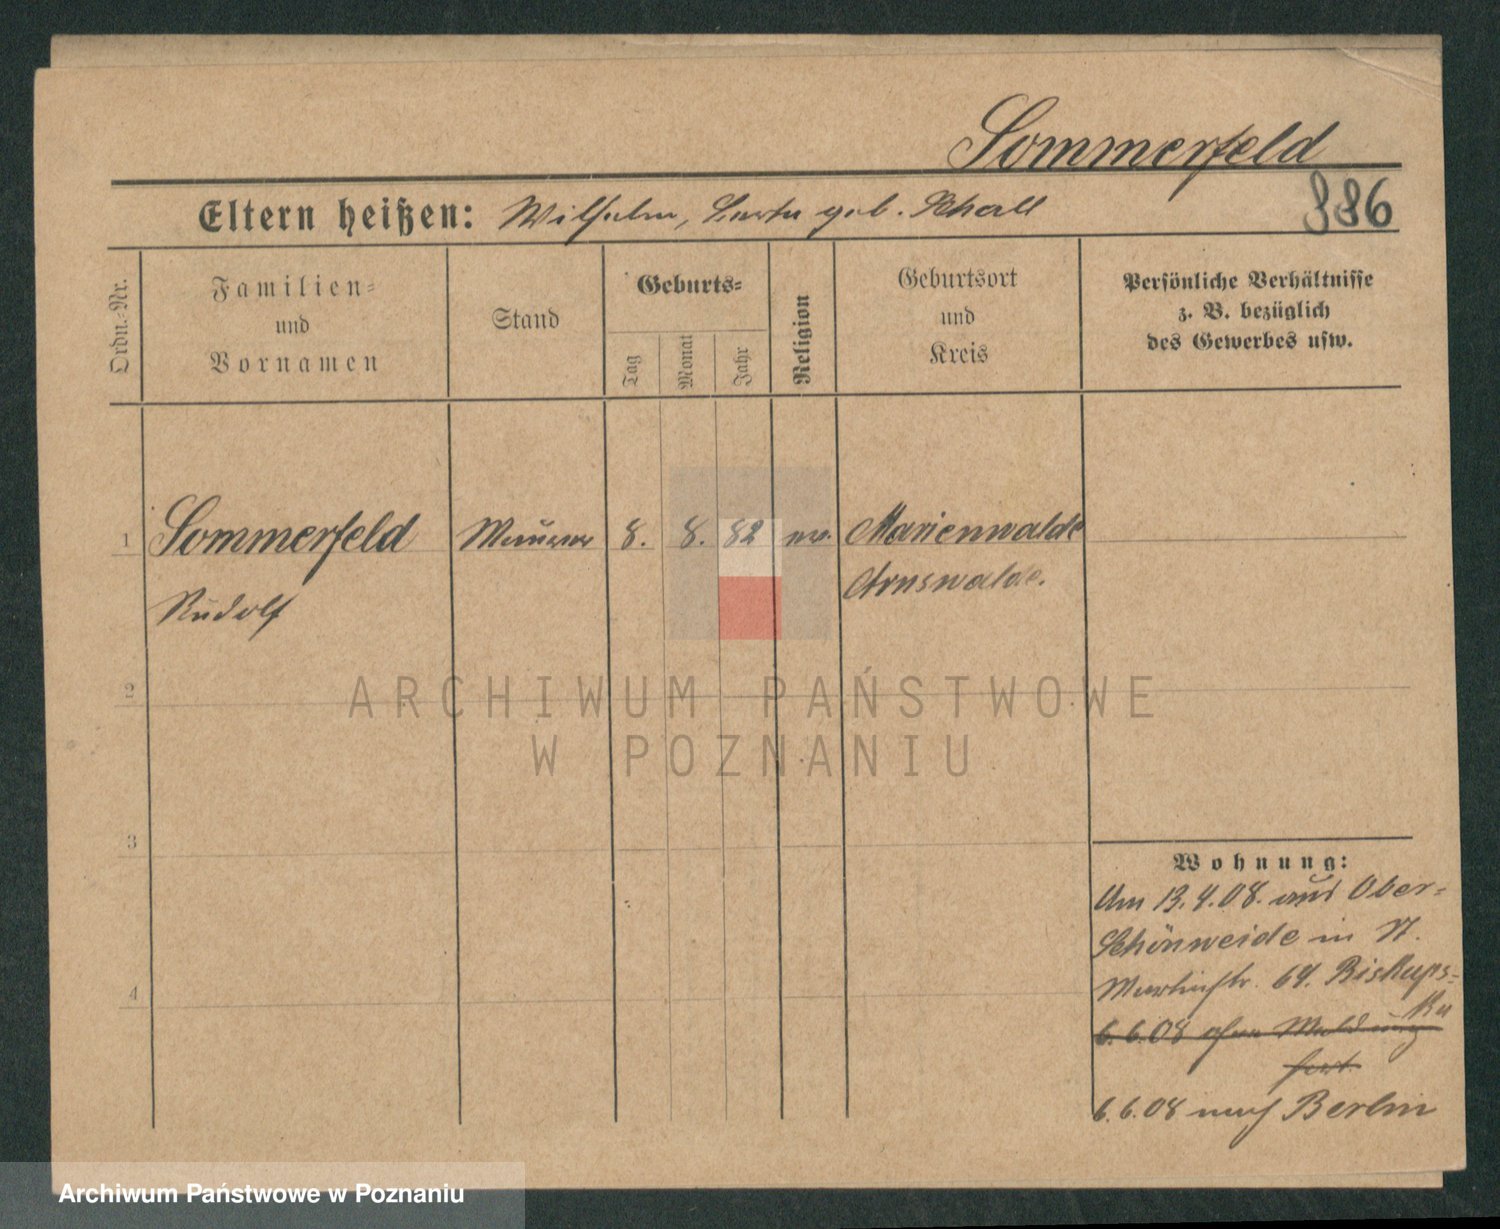 Sommerfeld
Eltern heißen: Wilhelm, geb. Schall
886
Ordn.-Nr.
Familien-
und
Vornamen
Stand
Geburts-
Tag
Monat
Jahr
Religion
Geburtsort
und
Kreis
Persönliche Verhältnisse
z. B. bezüglich
des Gewerbes usw.
1 Sommerfeld Maurer 8. 8. 82 ev. Marienwalde
Rudolf Arnswalde.
2
3
4
Wohnung:
Am 13.4.08. aus Ober-
Schönweide in St.
Martinstr. 69. Biskups-
ki
6.6.08 ohne Meldung
fort.
6.6.08 nach Berlin
ARCHIWUM PAŃSTWOWE
W POZNANIU
Archiwum Państwowe w Poznaniu